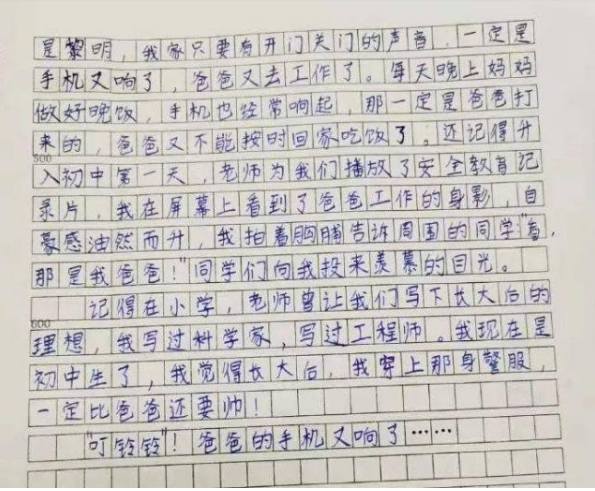 是黎明，我家只要有开门关门的声音，一定是
手机又响了，爸爸又去工作了。每天晚上妈妈
做好晚饭，手机也经常响起，那一定是爸爸打
来的，爸爸又不能按时回家吃饭了。还记得升
500
入初中第一天，老师为我们播放了安全教育记
录片，我在屏幕上看到了爸爸工作的身影，自
豪感油然而升，我拍着胸脯告诉周围的同学"看，
那是我爸爸！"同学们向我投来羡慕的目光。
记得在小学，老师曾让我们写下长大后的
600
理想，我写过科学家，写过工程师。我现在是
初中生了，我觉得长大后，我穿上那身警服，
一定比爸爸还要帅！
"叮铃铃"！爸爸的手机又响了……